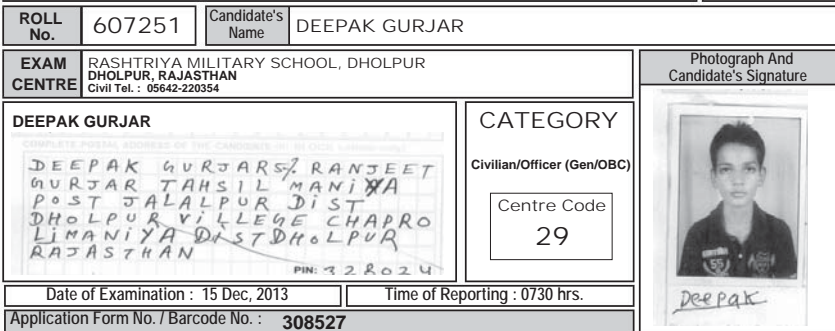 ROLL No. 607251 Candidate's Name DEEPAK GURJAR
EXAM CENTRE RASHTRIYA MILITARY SCHOOL, DHOLPUR
DHOLPUR, RAJASTHAN
Civil Tel. : 05642-220354
Photograph And
Candidate's Signature
DEEPAK GURJAR
COMPLETE POSTAL ADDRESS OF THE CANDIDATE
DEEPAK GURJAR S/o RANJEET
GURJAR TAHSIL MANiYA
POST JALALPUR DiST
DHOLPUR ViLLEGE CHAPRO
LiMANiYA DiST DHOLPUR
RAJASTHAN
PIN: 328024
CATEGORY
Civilian/Officer (Gen/OBC)
Centre Code
29
55
Deepak
Date of Examination : 15 Dec, 2013
Time of Reporting : 0730 hrs.
Application Form No. / Barcode No. : 308527